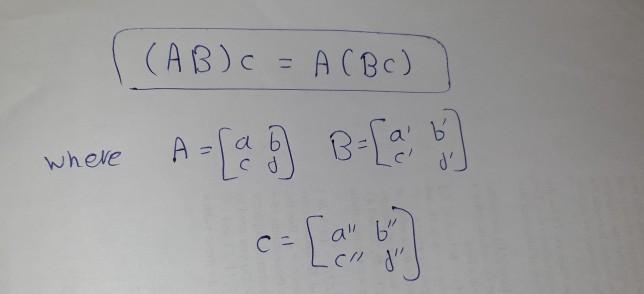 (AB)C = A(BC)
where A = [a b c d] B = [a' b' c' d']
C = [a'' b'' c'' d'']